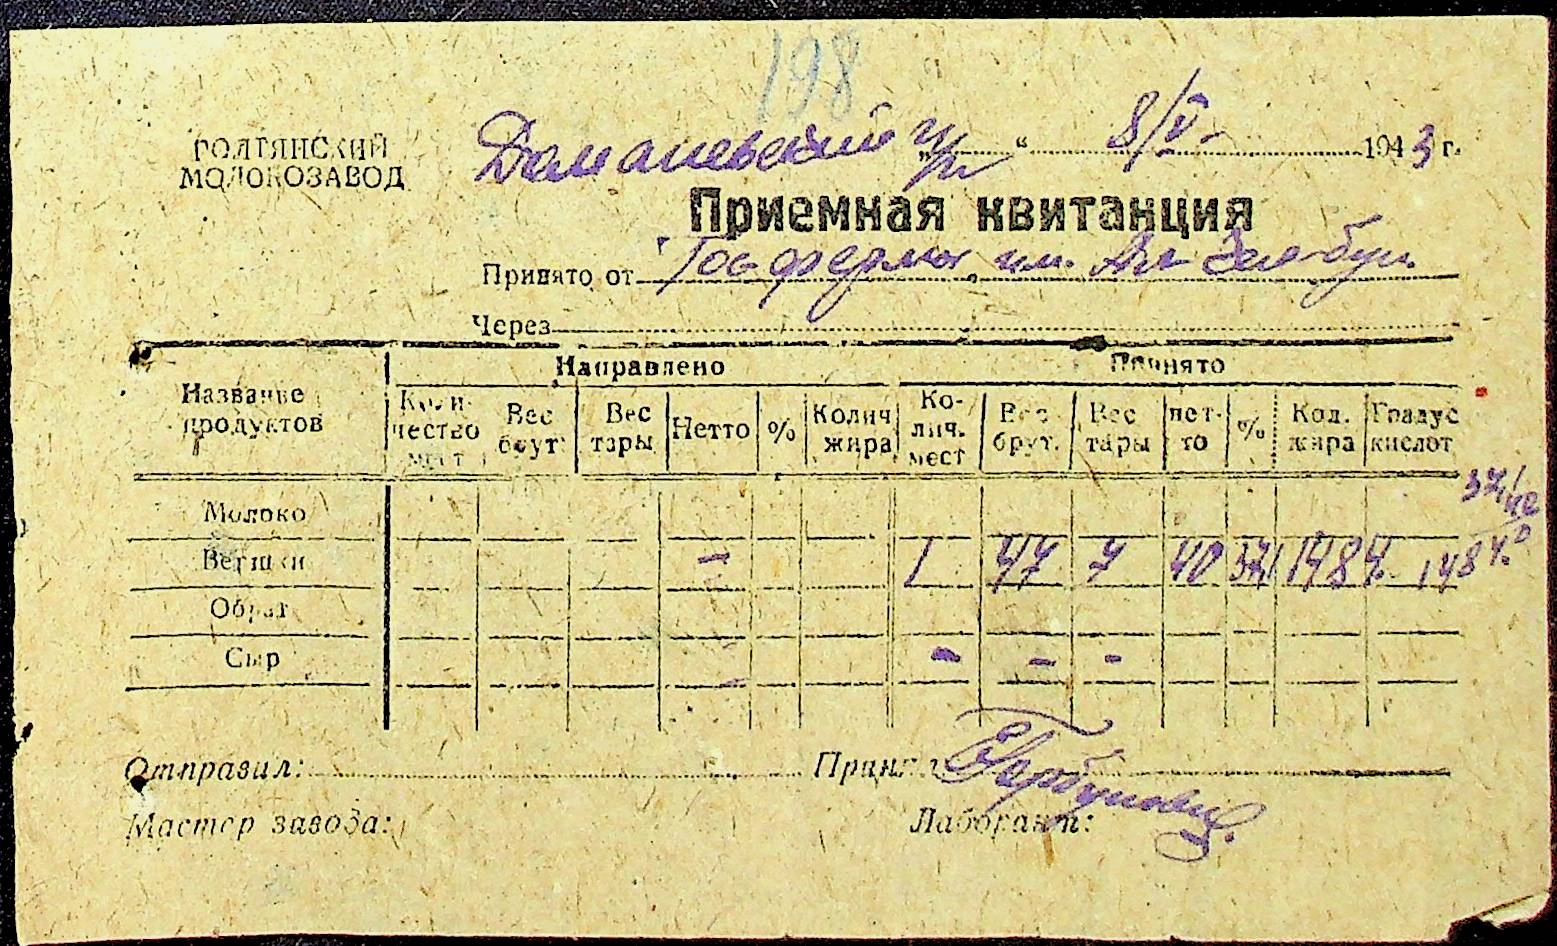 198
ГОЛТЯНСКИЙ
МОЛОКОЗАВОД
Доманевский " " 8/V 1943 г.
Приемная квитанция
Принято от Госфермы им.
Через
Название продуктов
Направлено
Принято
Количество мест
Вес брут
Вес тары
Нетто
%
Колич жира
Ко-лич. мест
Вес брут.
Вес тары
нет-то
%
Кол. жира
Градус кислот
Молоко
Вершки - 1 47 7 40 371 1484. 1484.0
Обрат
Сыр - - -
Отправил:
Принял
Мастер завода:
Лаборант: